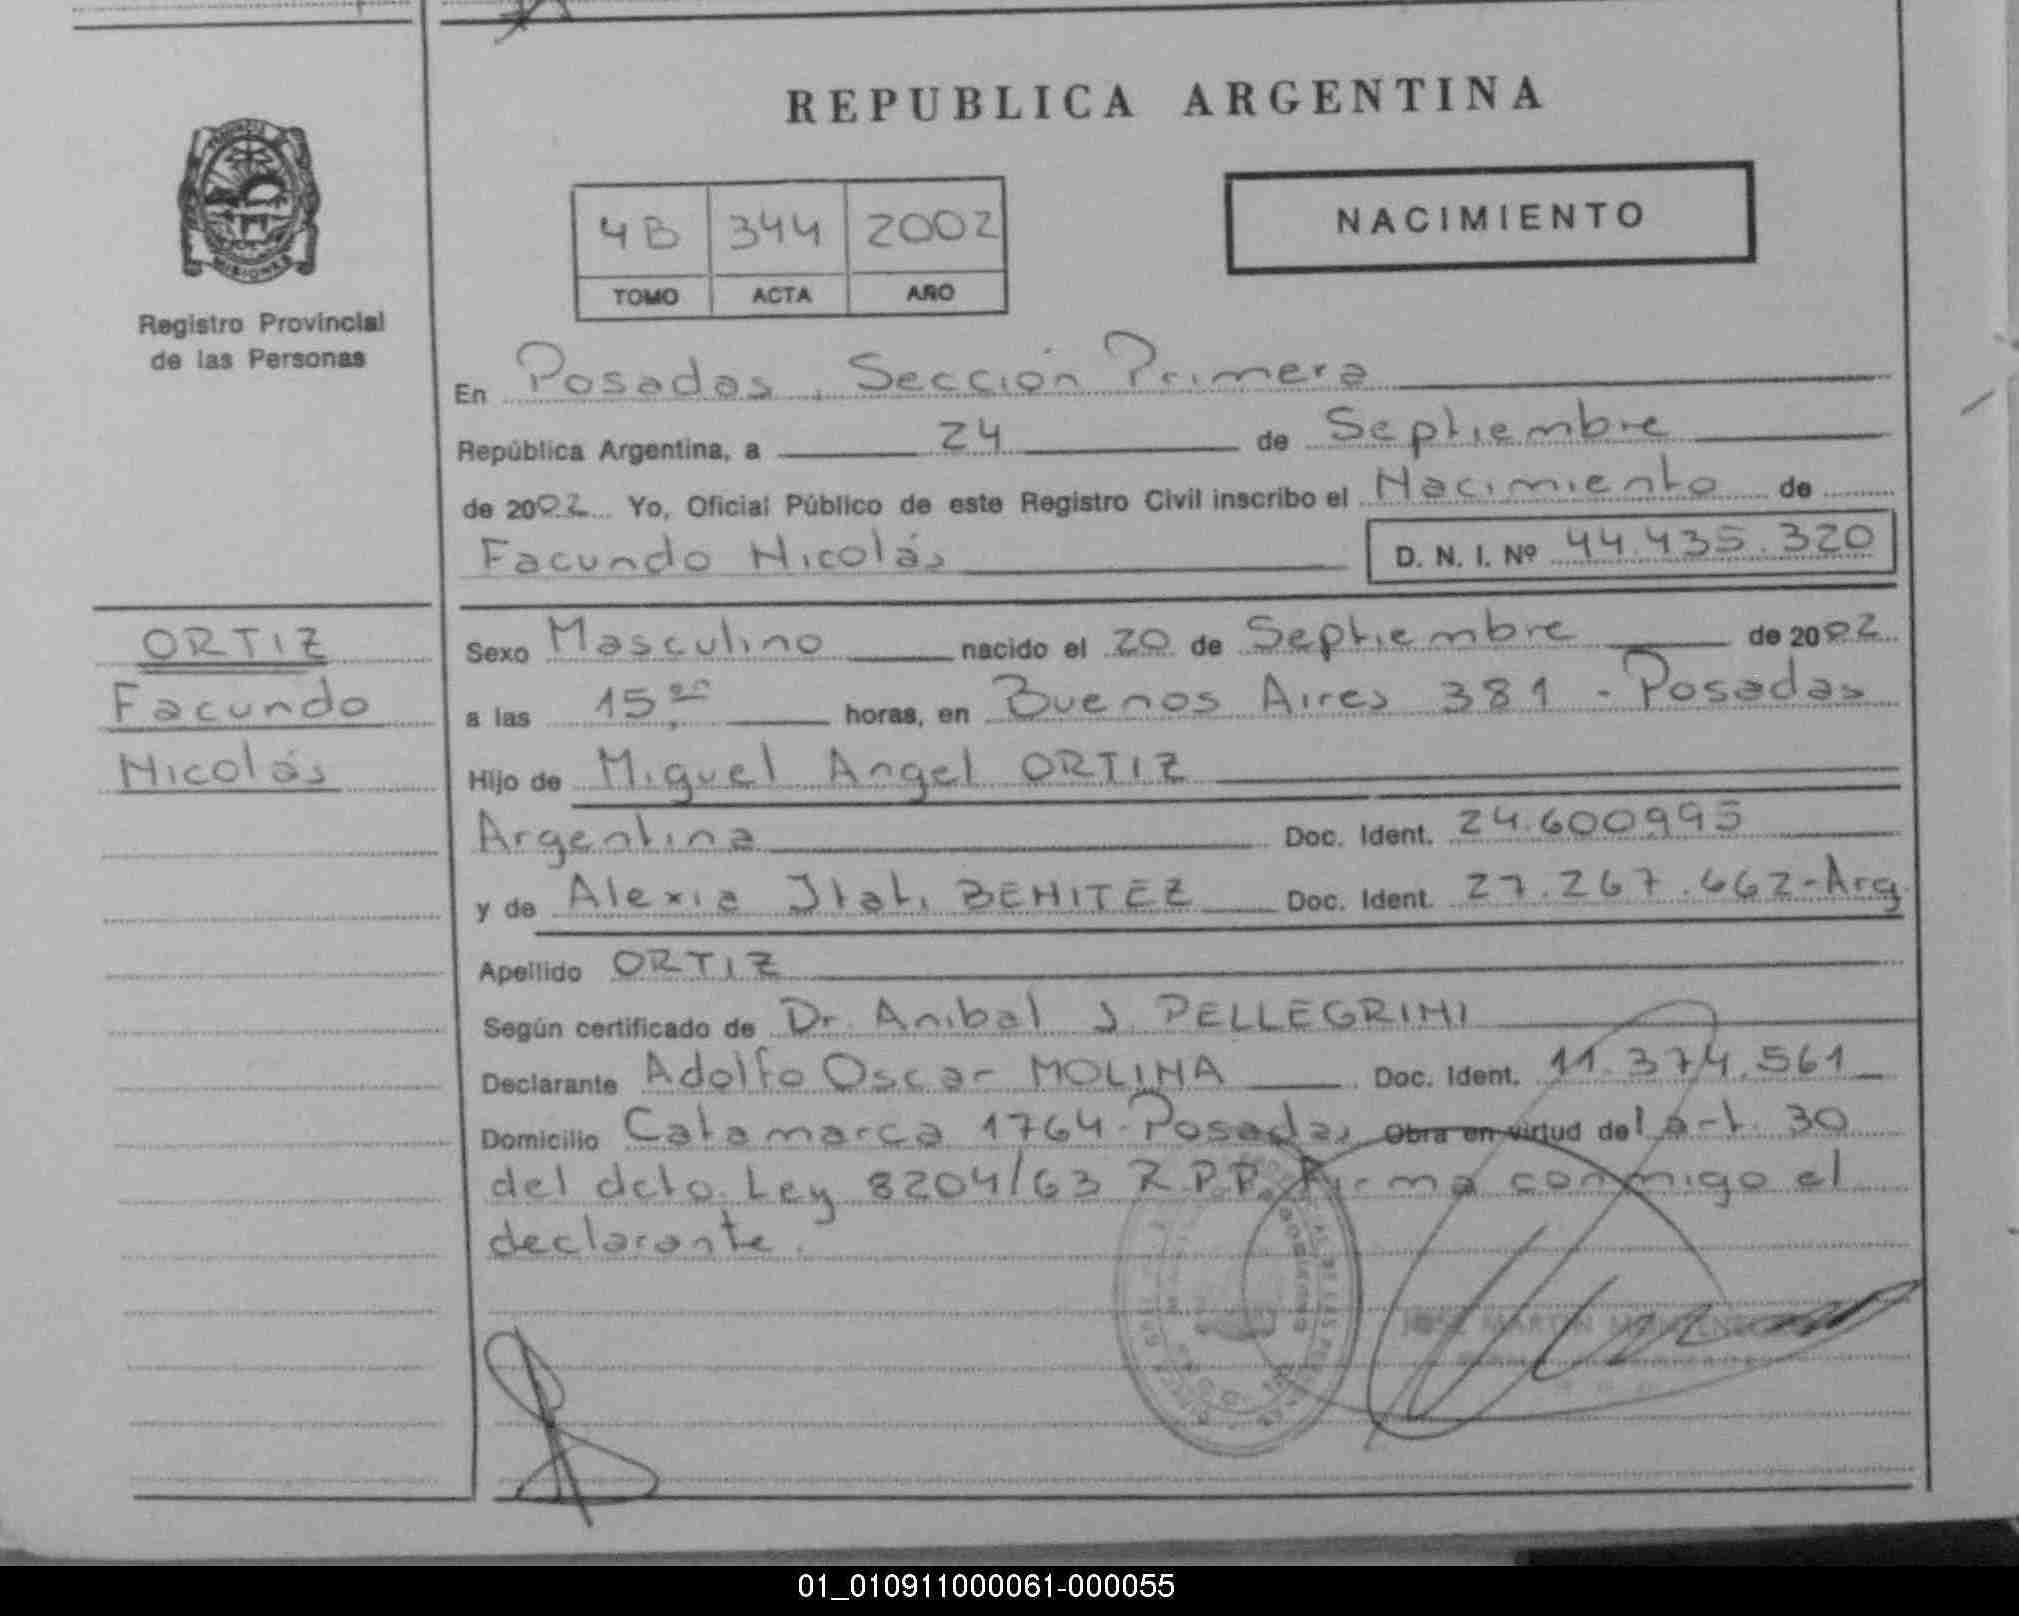 REPUBLICA ARGENTINA
MISIONES
Registro Provincial
de las Personas
4B 344 2002
TOMO ACTA AÑO
NACIMIENTO
En Posadas, Sección Primera
República Argentina, a 24 de Septiembre
de 2002 Yo, Oficial Público de este Registro Civil inscribo el Nacimiento de
Facundo Nicolás D. N. I. Nº 44.435.320
ORTIZ
Facundo
Nicolás
Sexo Masculino nacido el 20 de Septiembre de 2002
a las 15 horas, en Buenos Aires 381 - Posadas
Hijo de Miguel Angel ORTIZ
Argentina Doc. Ident. 24.600995
y de Alexia Itatí BENITEZ Doc. Ident. 27.267.662-Arg.
Apellido ORTIZ
Según certificado de Dr. Anibal J. PELLEGRINI
Declarante Adolfo Oscar MOLINA Doc. Ident. 11.374.561
Domicilio Catamarca 1764-Posadas Obra en virtud del art. 30
del dcto. Ley 8204/63 R.P.P. Firma conmigo el
declarante.
JOSE MARTIN
01_010911000061-000055